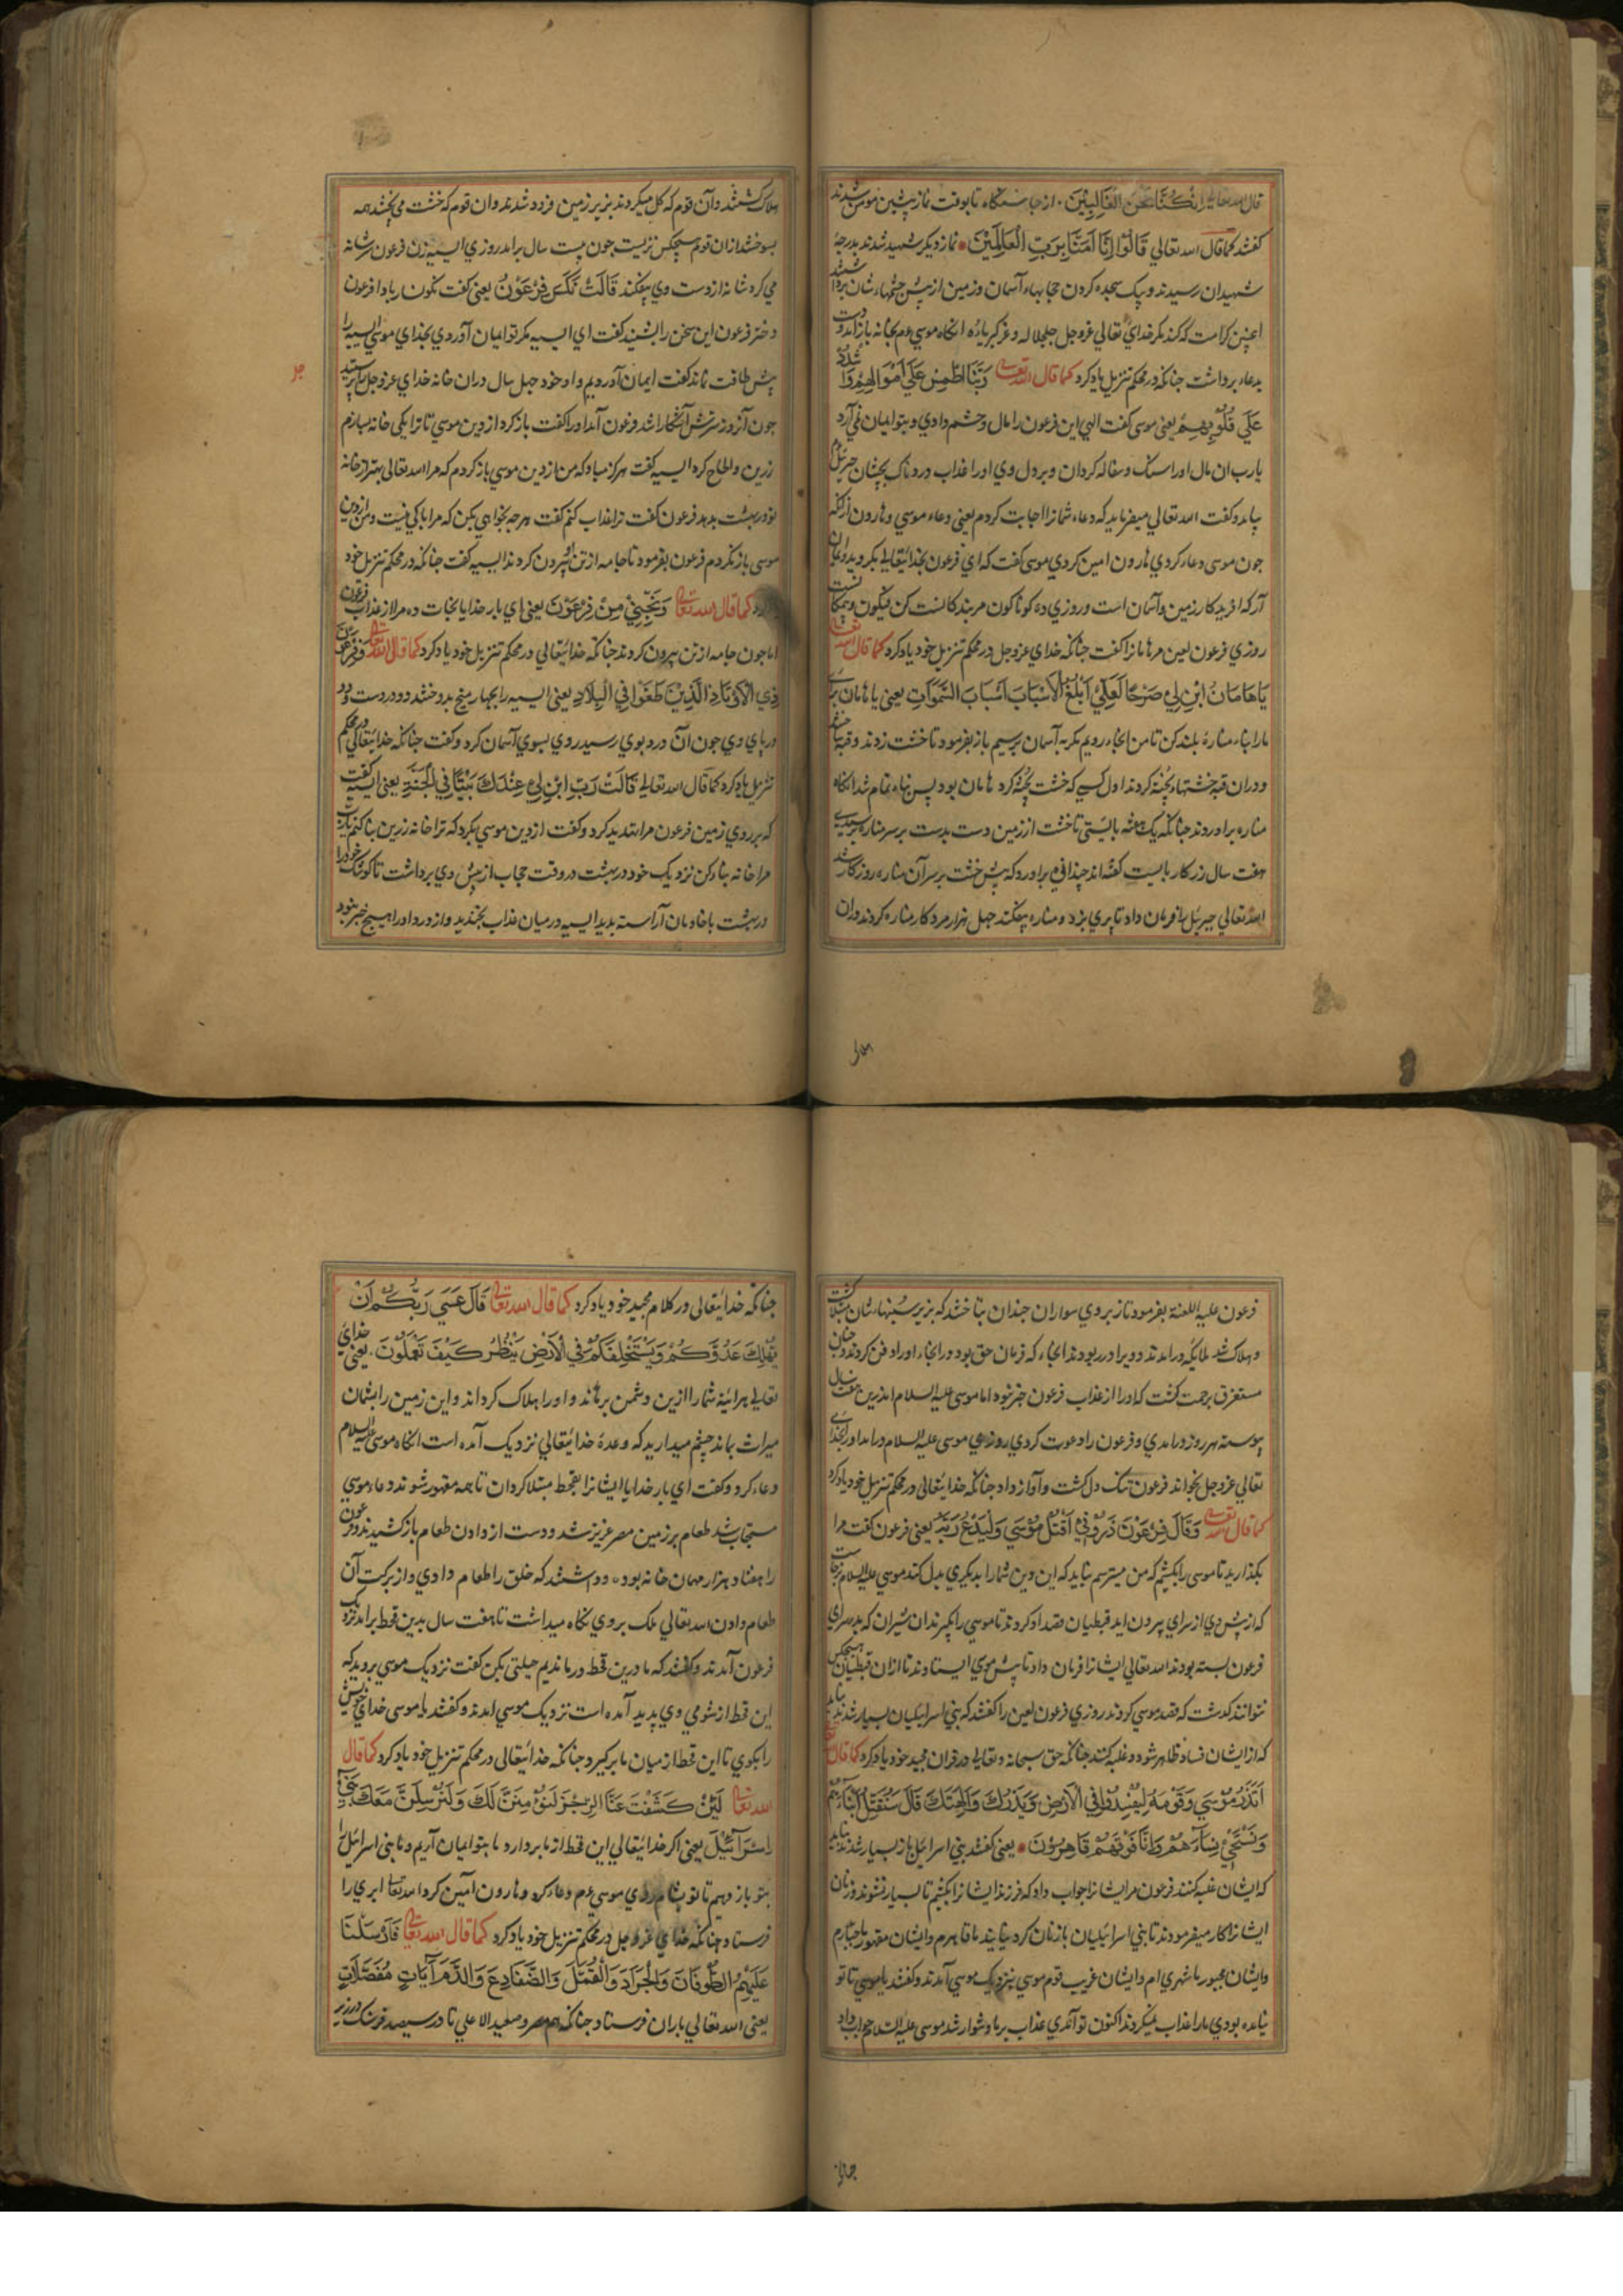 قال الله تعالی ان کنا نحن الغالبین از چاشتگاه تا بوقت نماز پیشین مومن شدند
گفتند کما قال الله تعالی قَالُوا اِنَّا اٰمَنَّا بِرَبِّ الْعَالَمِیْنَ نماز دیگر شهید شدند بدرجهٔ
شهیدان رسیدند و یک سجده کردن حجابهاء آسمان و زمین از پیش چشمهاء شان برداشتند
اینچنین کرامت که کند مگر خدای تعالی عزوجل جل جلاله و عم کبریاؤه انگاه موسی عم بخانه باز آمد و دست
بدعا برداشت چنانکه در محکم تنزیل یاد کرد کما قال الله تعالی رَبَّنَا اطْمِسْ عَلٰی اَمْوَالِهِمْ وَاشْدُدْ
عَلٰی قُلُوْبِهِمْ یعنی موسی گفت الهی این فرعون را مال و حشم دادی و بتو ایمان نمی آرد
یارب ان مال او را سنگ و سفاله گردان و بر دل وی او را عذاب دردناک بچشان جبرئیل عم
بیامد و گفت الله تعالی میفرماید که دعاء شما را اجابت کردم یعنی دعاء موسی و هارون ازانکه
چون موسی دعا کردی هارون امین کردی موسی گفت که ای فرعون بخدایتعالی بگرو و بدو ایمان
آر که افریدکار زمین و آسمان است و روزی ده کوناکون مر بندکانست کن فیکون و بیمکانست
روزی فرعون لعین مر هامان را گفت چنانکه خدای عزوجل در محکم تنزیل خود یاد کرد کما قال الله تعالی
یَا هَامَانُ ابْنِ لِیْ صَرْحًا لَعَلِّیْ اَبْلُغُ الْاَسْبَابَ اَسْبَابَ السَّمٰوَاتِ یعنی یا هامان برای
ما را بناء مناره بلند کن تا من انجا رویم مکر به آسمان برسیم باز بفرمود تا خشت زدند و قبه
و دران قبه خشتهاء پخته کردند اول کسی که خشت پخته کرد هامان بود پس بناء تمام شد انگاه
مناره برآوردند چنانکه یک هفته بایستی تا خشت از زمین دست بدست بر سر مناره برسیدی
هفت سال در کار بایست گفته اند چندانی برآورد که پس خشت بر سر آن مناره روز کار شد
الله تعالی جبرئیل را فرمان داد تا پری بزد و مناره بیفکند چهل هزار مرد کار مناره کردند و ان
هلاک گشتند و آن قوم که گل میکردند بزیر زمین فرود شدند و ان قوم که خشت می پختند همه
بسوختند ازان قوم هیچکس نزیست چون بیست سال برآمد روزی اسیه زن فرعون سر شانه
می کرد شانه از دست وی بیفکند قَالَتْ نَکَسَ فِرْعَوْنُ یعنی گفت نگون باد فرعون
دختر فرعون این سخن را بشنید گفت ای اسیه مکر تو ایمان آوردی بخدای موسی اسیه را
پیش طاقت نماند گفت ایمان آوردیم و او خود چهل سال دران خانه خدای عزوجل را پرستید
چون آن روز سرش آشکارا شد فرعون آمد او را گفت باز گرد از دین موسی تا ترا یکی خانه سازم
زرین و الحاح کرد اسیه گفت هرگز مباد که من از دین موسی باز گردم که مرا الله تعالی بهتر از خانه
تو در بهشت بدهد فرعون گفت ترا عذاب کنم گفت هرچه بخواهی بکن که مرا باکی نیست و من از دین
موسی باز نگردم فرعون بفرمود تا جامه از تن او بیرون کردند اسیه گفت چنانکه در محکم تنزیل خود
یاد کرد کما قال الله تعالی وَنَجِّنِیْ مِنْ فِرْعَوْنَ یعنی ای بار خدایا نجات ده مرا از عذاب فرعون
اما چون جامه از تن بیرون کردند چنانکه خدایتعالی در محکم تنزیل خود یاد کرد کما قال الله تعالی وَفِرْعَوْنَ
ذِی الْاَوْتَادِ الَّذِیْنَ طَغَوْا فِی الْبِلَادِ یعنی اسیه را بچهار میخ بدوختند دو در دست و دو
در پای وی چون آن درد بوی رسید روی بسوی آسمان کرد و گفت چنانکه خدایتعالی در محکم
تنزیل یاد کرد کما قال الله تعالی قَالَتْ رَبِّ ابْنِ لِیْ عِنْدَكَ بَیْتًا فِی الْجَنَّةِ یعنی اسیه گفت
که بر روی زمین فرعون مرا تهدید کرد و گفت از دین موسی بگرد که ترا خانه زرین بنا کنم یارب
مرا خانه بناء کن نزدیک خود در بهشت در وقت حجاب از پیش وی برداشت تا کوشک خود را
در بهشت با خادمان آراسته بدید اسیه در میان عذاب بخندید و از درد او را هیچ خبر نبود
فرعون علیه اللعنة بفرمود تا بر روی سواران چندان بتاختند که بزیر سنبهاء شان هلاک گشت
و هلاک شد ملایکه درآمدند و ویرا در ربودند انجاء که فرمان حق بود در انجاء او را دفن کردند و چنان
مستغرق برحمت گشت که او را از عذاب فرعون خبر نبود اما موسی علیه السلام اندرین هفت سال
پیوسته هر روز درآمدی و فرعون را دعوت کردی روزی موسی علیه السلام درآمد او را بخدای
تعالی عزوجل بخواند فرعون تنگ دل گشت و آواز داد چنانکه خدایتعالی در محکم تنزیل خود یاد کرد
کما قال الله تعالی وَقَالَ فِرْعَوْنَ ذَرُوْنِیْ اَقْتُلْ مُوْسٰی وَلْیَدْعُ رَبَّهُ یعنی فرعون گفت مرا
بگذارید تا موسی را بکشیم که من میترسم نباید که این دین شما را بدیگری بدل کند موسی علیه السلام برخاست
که از پیش وی از سرای بیرون اید قبطیان قصد او کردند تا موسی را بگیرند ان شیران که بدر سرای
فرعون بسته بودند الله تعالی ایشانرا فرمان داد تا پیش موی ایستادند تا ازان قبطیان هیچکس
نتوانند گذشت که قصد موسی کردند روزی فرعون لعین را گفتند که بنی اسرائیلیان بسیار شدند نباید
که از ایشان فساد ظاهر شود و غلبه کنند چنانکه حق سبحانه و تعالی در قران مجید خود یاد کرد کما قال الله تعالی
اَتَذَرُ مُوْسٰی وَقَوْمَهُ لِیُفْسِدُوْا فِی الْاَرْضِ وَیَذَرَكَ وَاٰلِهَتَكَ قَالَ سَنُقَتِّلُ اَبْنَاءَهُمْ
وَنَسْتَحْیِیْ نِسَاءَهُمْ وَاِنَّا فَوْقَهُمْ قَاهِرُوْنَ یعنی گفتند بنی اسرائیل باز بسیار شدند نباید
که ایشان غلبه کنند فرعون مر ایشانرا جواب داد که فرزند ایشانرا بکشیم تا بسیار نشوند و زنان
ایشانرا کار میفرمودند تا بنی اسرائیلیان با زنان گرد نیایند ما قاهرم و ایشان مقهور ما جبارم
و ایشان مجبور ما شهری ام و ایشان غریب قوم موسی بنزدیک موسی آمدند و گفتند یا موسی تا تو
نیامده بودی ما را عذاب نمیکردند اکنون تو آمدی عذاب بر ما دشوار شد موسی علیه السلام جواب داد
چنانکه خدایتعالی در کلام مجید خود یاد کرد کما قال الله تعالی قَالَ عَسٰی رَبُّکُمْ اَنْ
یُهْلِكَ عَدُوَّکُمْ وَیَسْتَخْلِفَکُمْ فِی الْاَرْضِ یَنْظُرُ کَیْفَ تَعْمَلُوْنَ یعنی خدای
تعالی هر آئینه شما را ازین دشمن برهاند و او را هلاک گرداند و این زمین را بشمان
میراث بماند چشم میدارید که وعدهٔ خدایتعالی نزدیک آمده است انگاه موسی علیه السلام
دعاء کرد و گفت ای بار خدایا ایشانرا بقحط مبتلا گردان تا همه مقهور شوند دعاء موسی
مستجاب شد طعام بر زمین مصر عزیز شد و دست از دادن طعام باز کشیدند و فرعون
را هفتاد هزار مهمان خانه بوده و داشتند که خلق را طعام دادی و از برکت آن
طعام دادن الله تعالی ملک بر وی نگاه میداشت تا هفت سال بدین قحط برآمد نزدیک
فرعون آمدند و گفتند که ما درین قحط درماندیم حیلتی بکن گفت نزدیک موسی بروید که
این قحط از شومی وی پدید آمده است نزدیک موسی امدند و گفتند یا موسی خدای خویش
را بگوی تا این قحط از میان ما برگیرد چنانکه خدایتعالی در محکم تنزیل خود یاد کرد کما قال
الله تعالی لَئِنْ کَشَفْتَ عَنَّا الرِّجْزَ لَنُؤْمِنَنَّ لَكَ وَلَنُرْسِلَنَّ مَعَكَ بَنِیْ
اِسْرَآئِیْلَ یعنی اگر خدایتعالی این قحط از ما بردارد ما بتو ایمان آریم و ما بنی اسرائیل را
بتو باز دهیم تا تو بشام روی موسی عم دعاء کرد و هارون آمین کرد الله تعالی ابری را
فرستاد چنانکه خدای عزوجل در محکم تنزیل خود یاد کرد کما قال الله تعالی فَاَرْسَلْنَا
عَلَیْهِمُ الطُّوْفَانَ وَالْجَرَادَ وَالْقُمَّلَ وَالضَّفَادِعَ وَالدَّمَ اٰیَاتٍ مُفَصَّلَاتٍ
یعنی الله تعالی باران فرستاد چنانکه هم مصر و صعید الاعلی تا در سیصد فرسنگ در زیر